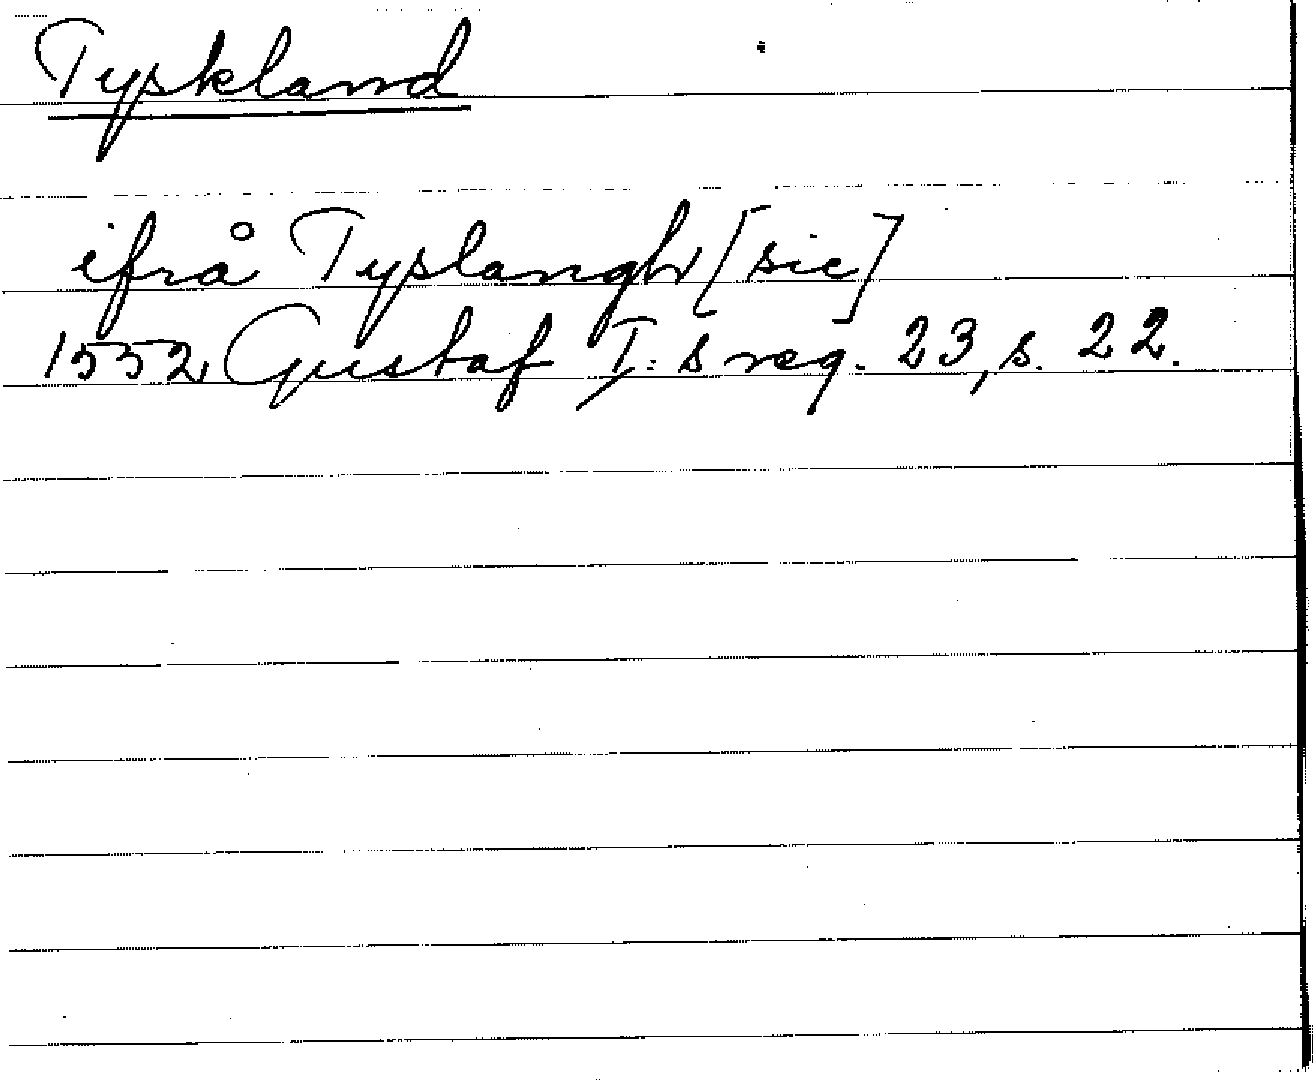 Tyskland
ifrå Tyslangh [sic]
1552 Gustaf I:s reg. 23, s. 22.